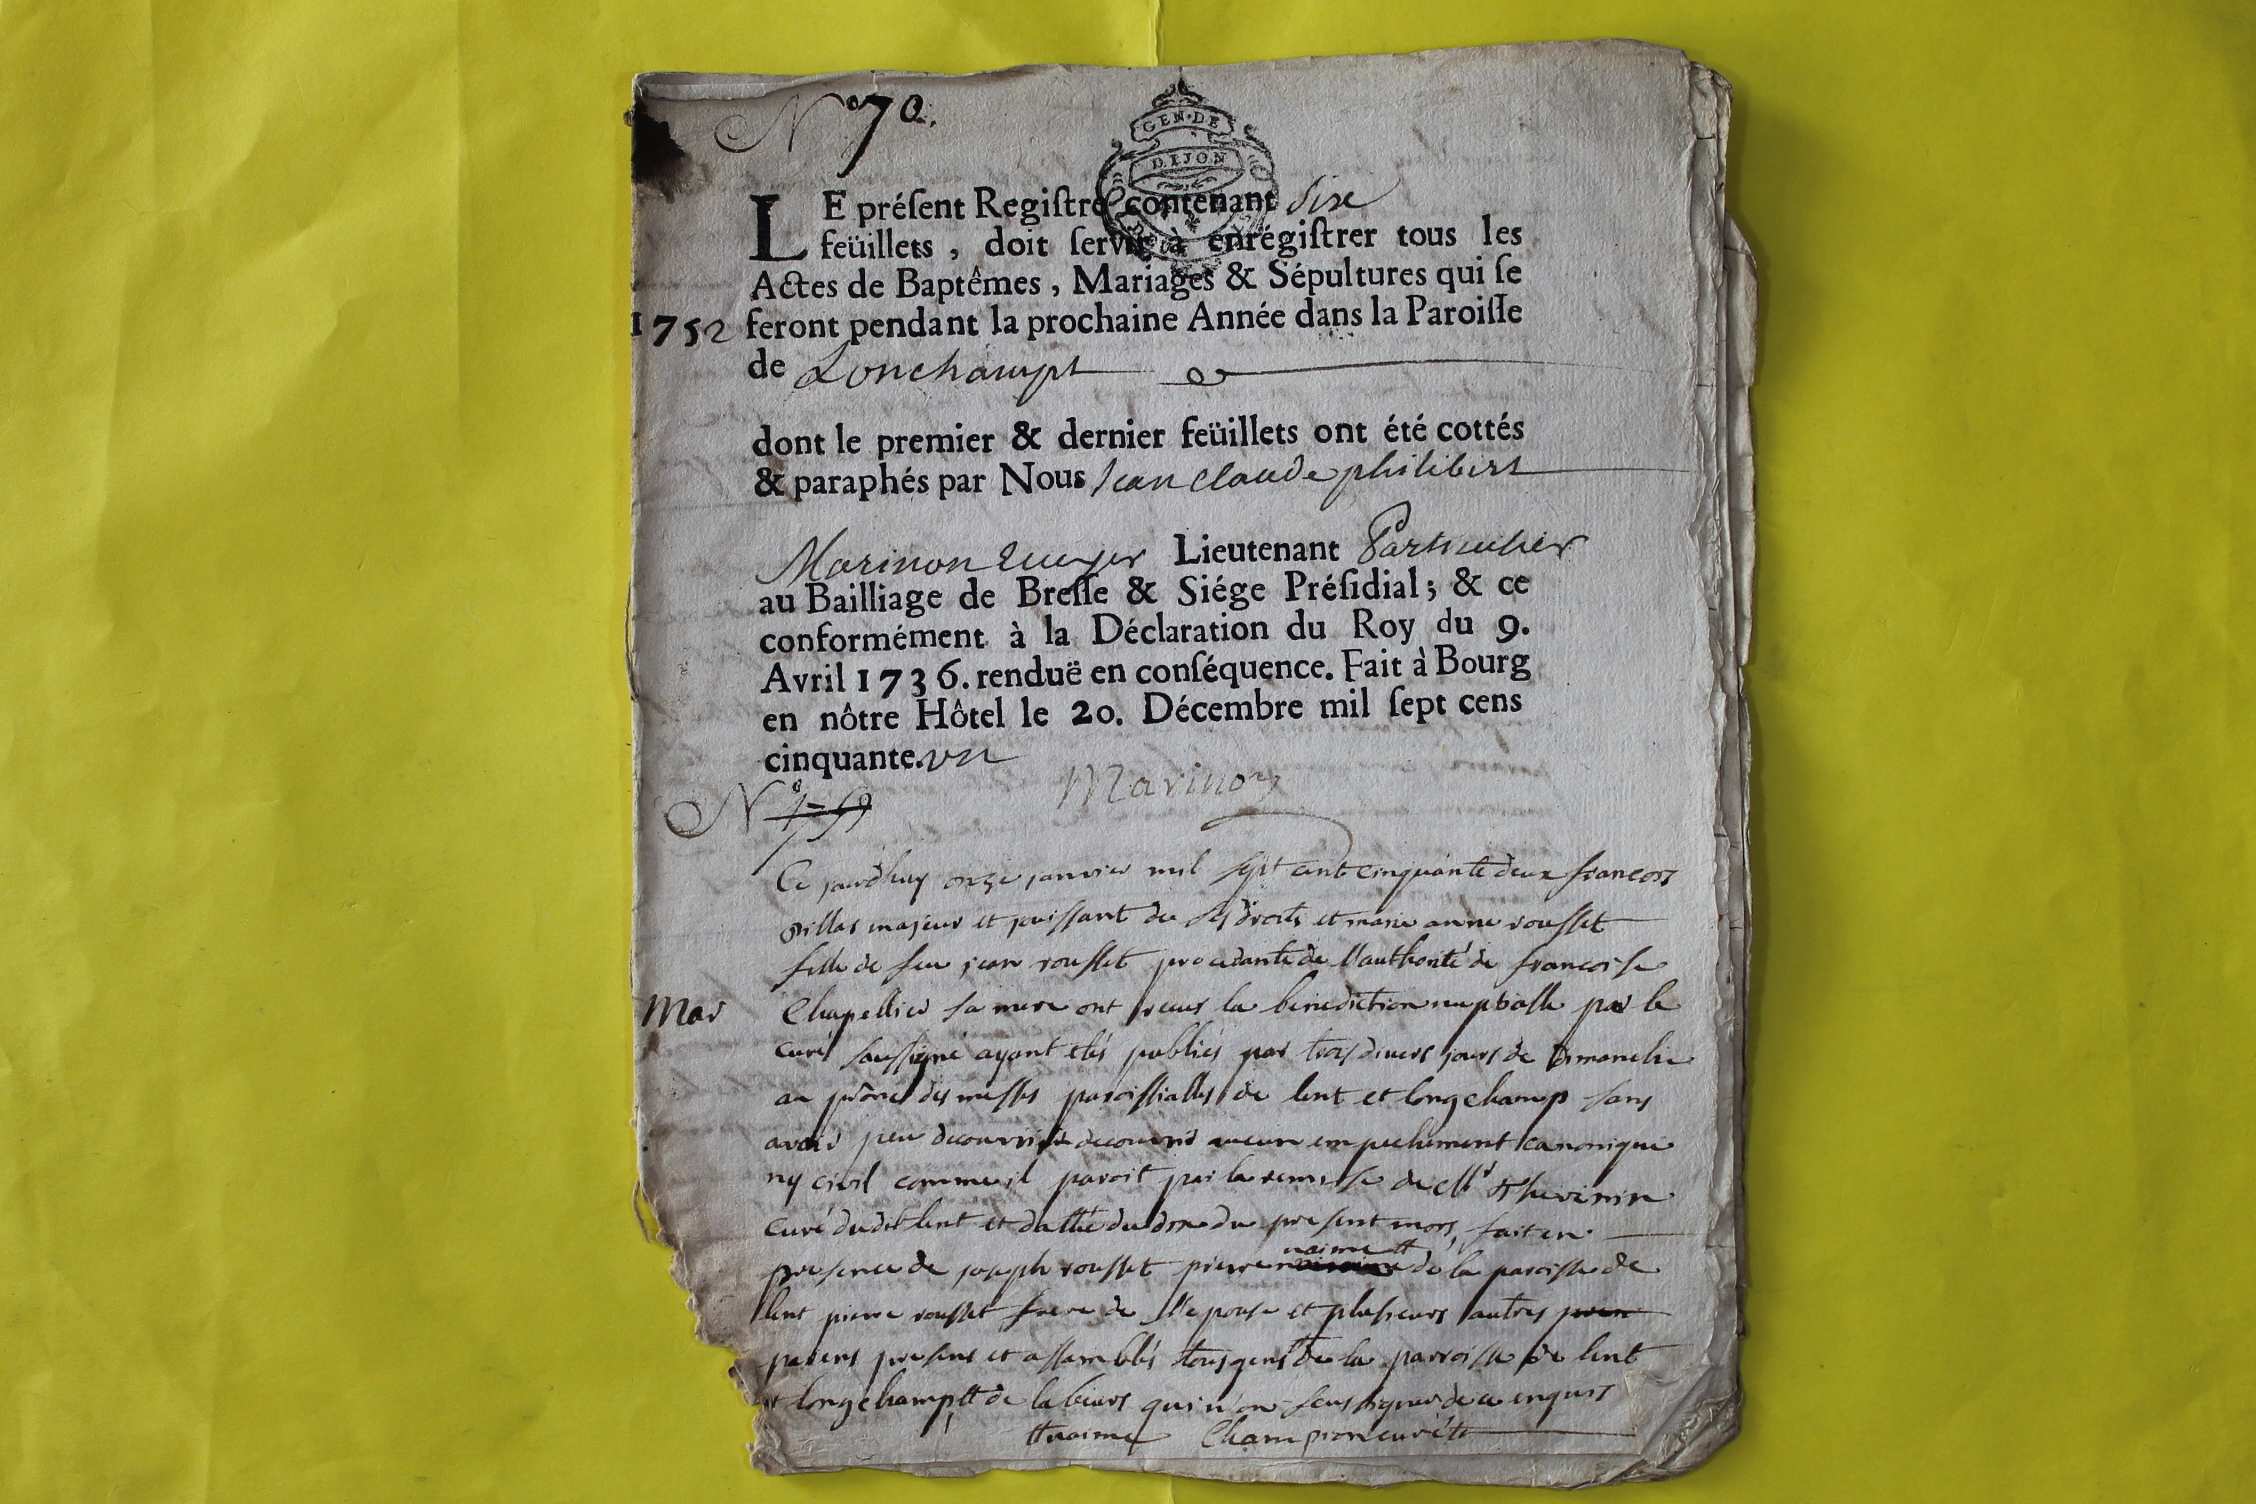 N° 70.
GEN·DE
DIJON
LE préſent Regiſtre contenant Six
feüillets, doit ſervir à enrégiſtrer tous les
Actes de Baptêmes, Mariages & Sépultures qui ſe
1752 feront pendant la prochaine Année dans la Paroiſſe
de Lonchampt
dont le premier & dernier feüillets ont été cottés
& paraphés par Nous Jean Claude philibert
Marinon Lieutenant Particulier
au Bailliage de Breſſe & Siége Préſidial; & ce
conformément à la Déclaration du Roy du 9.
Avril 1736. renduë en conſéquence. Fait à Bourg
en nôtre Hôtel le 20. Décembre mil ſept cens
cinquante. un
N°
Marinon
Ce jourdhuy onze janvier mil sept cent cinquante deux francois
majeur et jouissant de ses droits et marie anne rousset
fille de feu jean rousset procedante de l'authorité de francoise
Mar Chapellier sa mere ont reçus la benediction nuptialle par le
curé soussigné ayant etés publiés par trois divers jours de dimanche
au prône des messes paroissialles de lent et longchamp sans
avoir peu decouvrir decouvrir aucun empechement canonique
ny civil comme il paroit par la remise de Mr Thevenin
curé dudit lent et dattée du dix du present mois, fait en
naime tt
presence de joseph rousset pierre de la paroisse de
lent pierre rousset frere de l'epouse et plusieurs autres
parens presens et assemblés tous gens de la parroisse de lent
et longchampt de qui n'on sceus signer de ce enquis
tt naime Champion curé